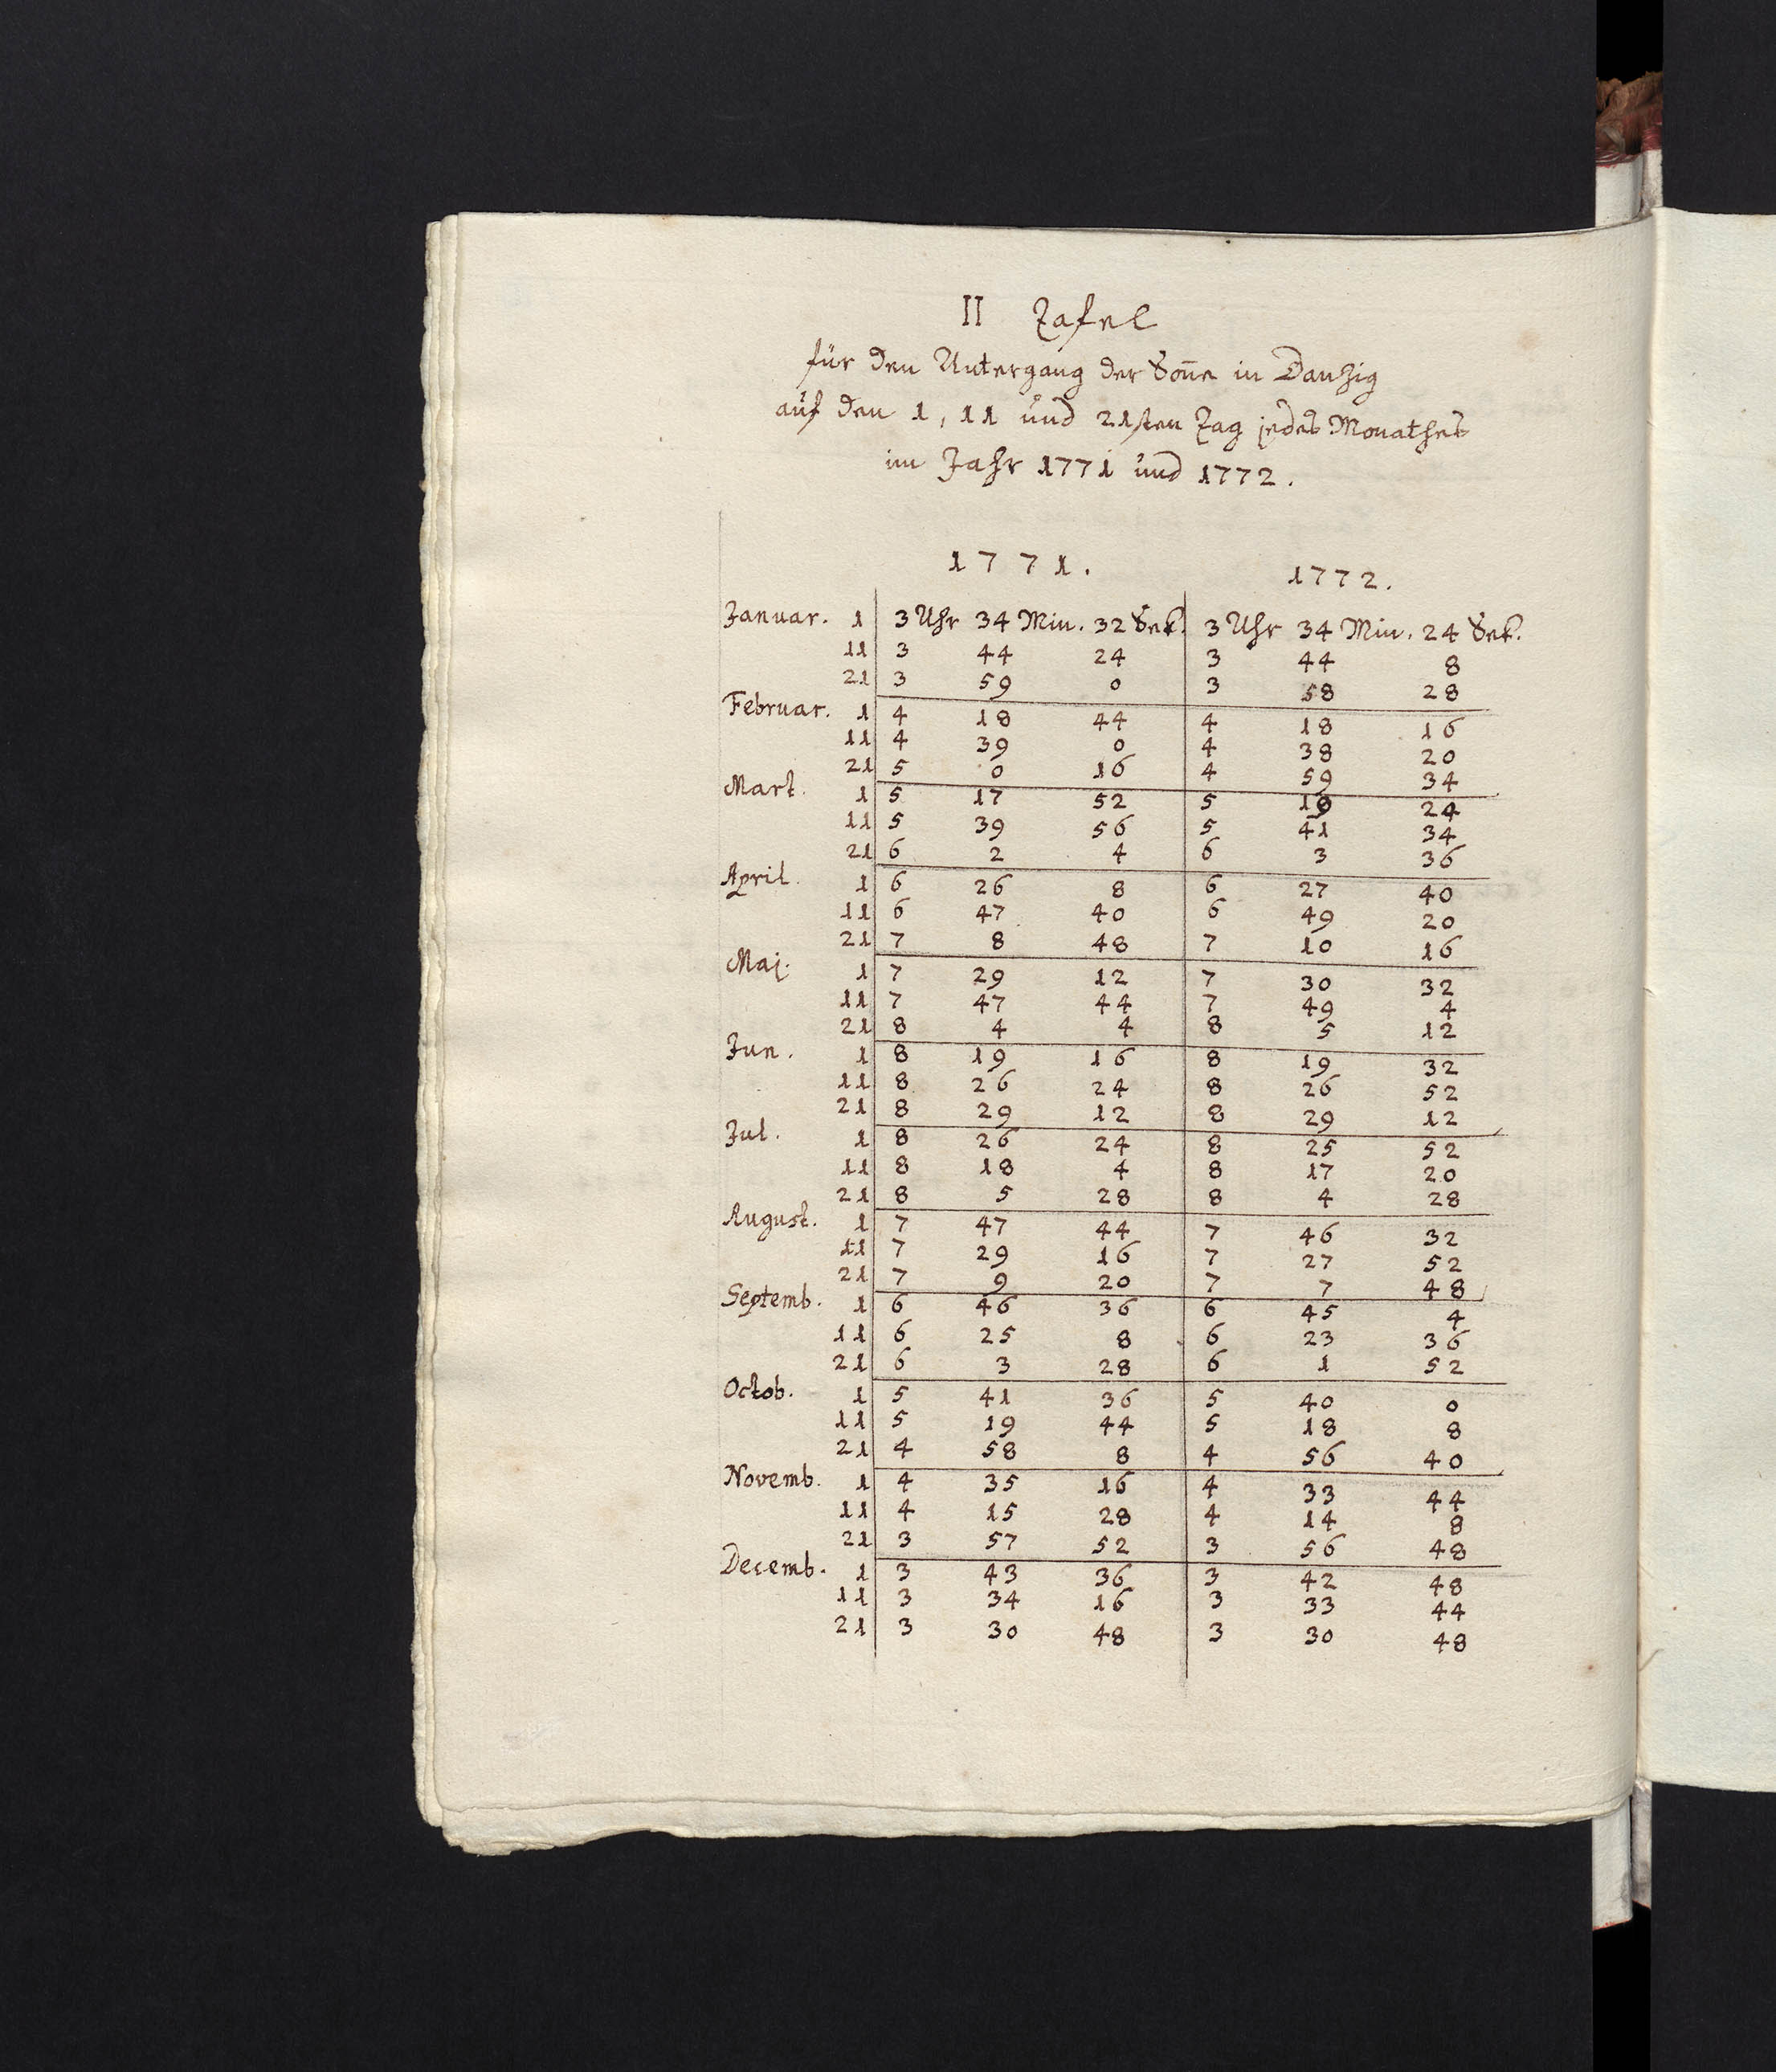 II Tafel
für den Untergang der Soñe in Danzig
auf den 1, 11 und 21sten Tag jedes Monathes
im Jahr 1771 und 1772.
1771. 1772.
Januar. 1 3 Uhr 34 Min. 32 Sek. 3 Uhr 34 Min. 24 Sek.
11 3 44 24 3 44 8
21 3 59 0 3 58 28
Februar. 1 4 18 44 4 18 16
11 4 39 0 4 38 20
21 5 0 16 4 59 34
Mart. 1 5 17 52 5 19 24
11 5 39 56 5 41 34
21 6 2 4 6 3 36
April. 1 6 26 8 6 27 40
11 6 47 40 6 49 20
21 7 8 48 7 10 16
Maj. 1 7 29 12 7 30 32
11 7 47 44 7 49 4
21 8 4 4 8 5 12
Jun. 1 8 19 16 8 19 32
11 8 26 24 8 26 52
21 8 29 12 8 29 12
Jul. 1 8 26 24 8 25 52
11 8 18 4 8 17 20
21 8 5 28 8 4 28
August. 1 7 47 44 7 46 32
11 7 29 16 7 27 52
21 7 9 20 7 7 48
Septemb. 1 6 46 36 6 45 4
11 6 25 8 6 23 36
21 6 3 28 6 1 52
Octob. 1 5 41 36 5 40 0
11 5 19 44 5 18 8
21 4 58 8 4 56 40
Novemb. 1 4 35 16 4 33 44
11 4 15 28 4 14 8
21 3 57 52 3 56 48
Decemb. 1 3 43 36 3 42 48
11 3 34 16 3 33 44
21 3 30 48 3 30 48